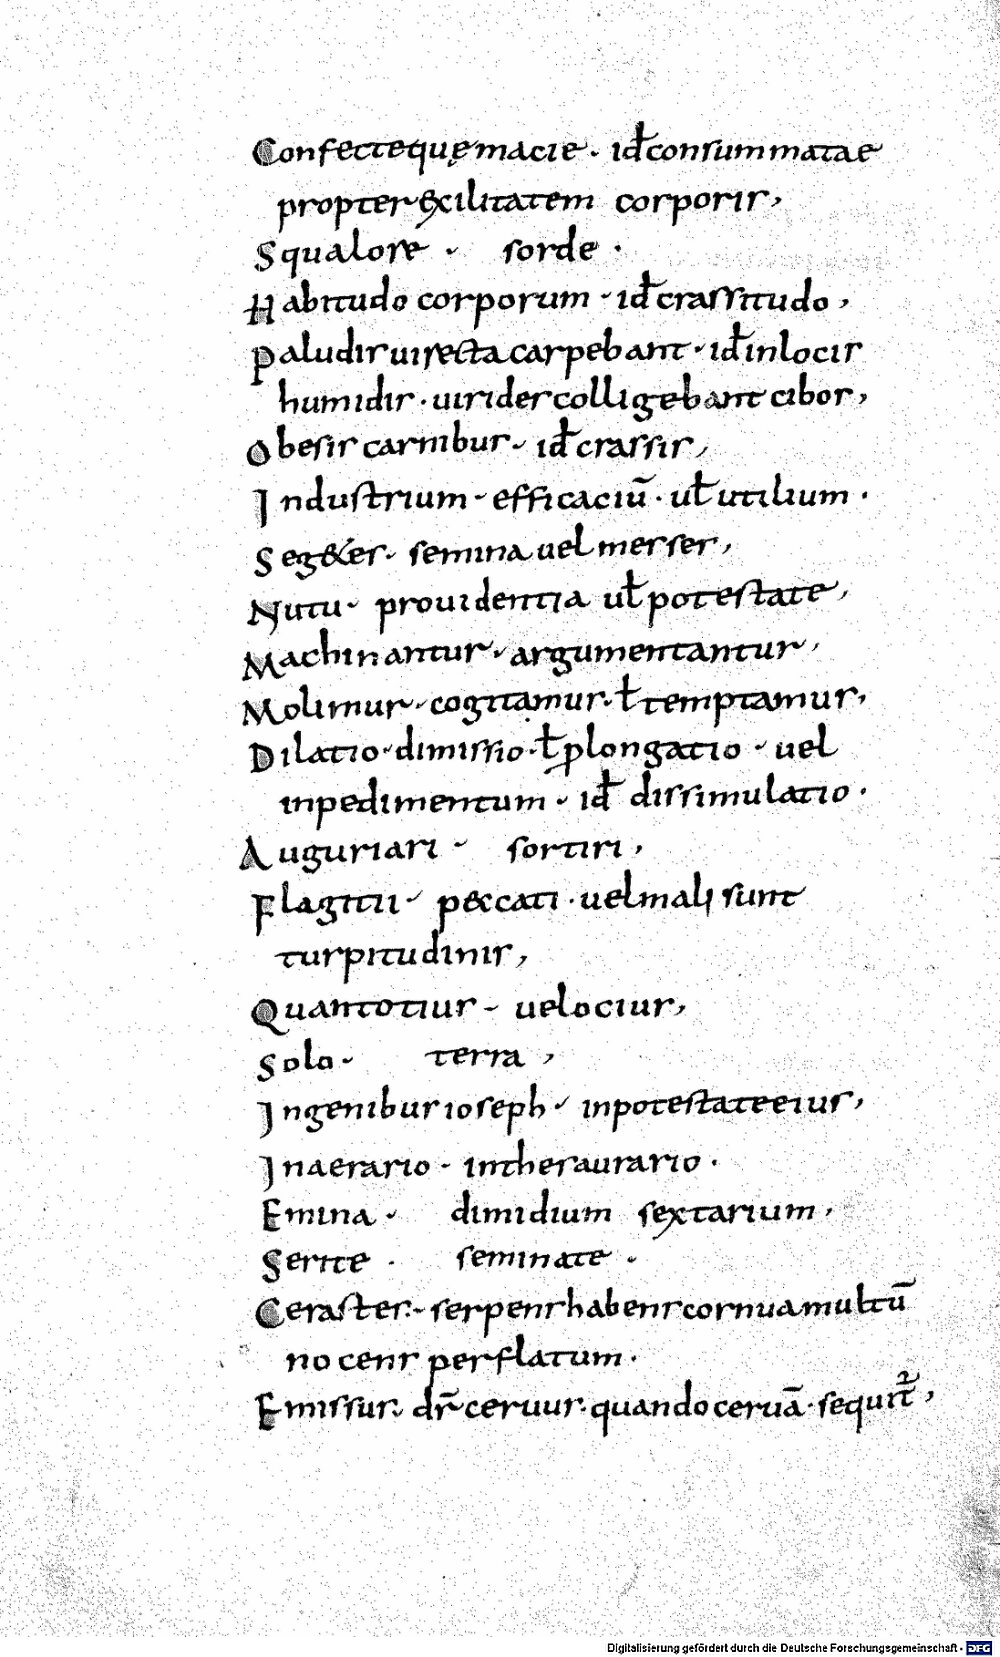 Confectequę macie · id̄ consummatae
propter exilitatem corporis,
Squalore · sorde ·
Habitudo corporum · id̄ crassitudo,
Paludis uirecta carpebant · id̄ in locis
humidis · uirides colligebant cibos,
Obesis carnibus · id̄ crassis,
Industrium · efficaciū · uƚ utilium ·
Seg&es · semina uel messes,
Nutu · prouidentia uƚ potestate,
Machinantur · argumentantur,
Molimur · cogitamus · ƚ temptamus,
Dilatio · dimissio · ƚ ꝓlongatio · uel
inpedimentum · id̄ dissimulatio ·
Auguriari · sortiri,
Flagitii · peccati · uel mali sunt
turpitudinis,
Quantotius · uelocius,
Solo · terra,
In genibus ioseph · in potestate eius,
In aerario · in thesaurario ·
Emina · dimidium sextarium,
Serite · seminate ·
Cerastes · serpens habens cornua multū
nocens per flatum ·
Emissus · dr̄ ceruus · quando ceruā · sequit᷑,
Digitalisierung gefördert durch die Deutsche Forschungsgemeinschaft - DFG